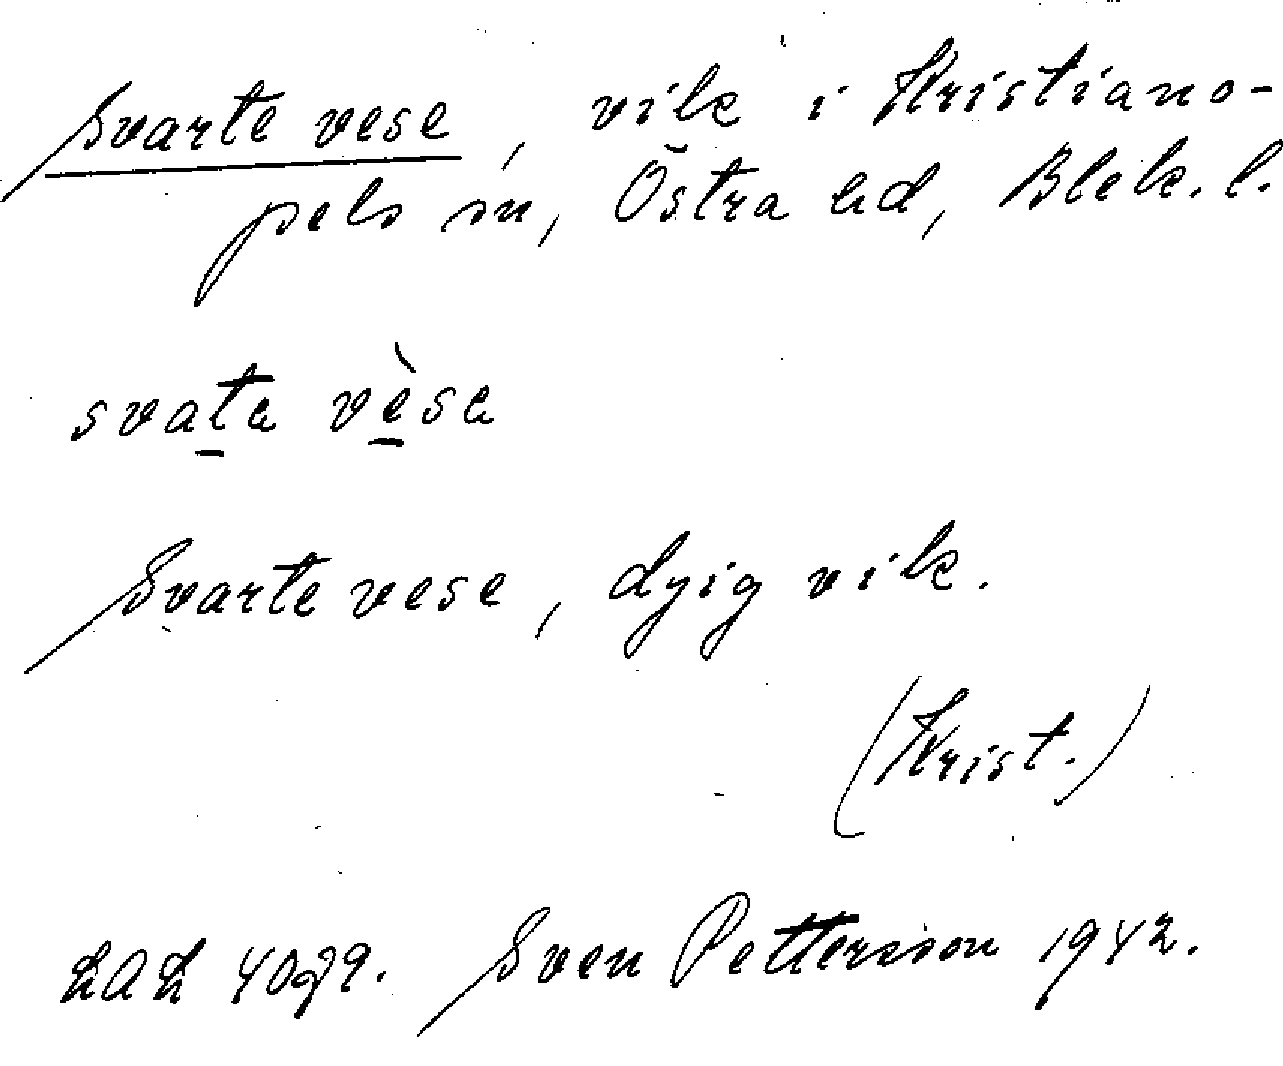 Svarte vese, vik i Kristiano-
pels sn, Östra hd, Blek. l.
svata vèsa
Svarte vese, dyig vik.
(Krist.)
LAL 4079. Sven Pettersson 1942.